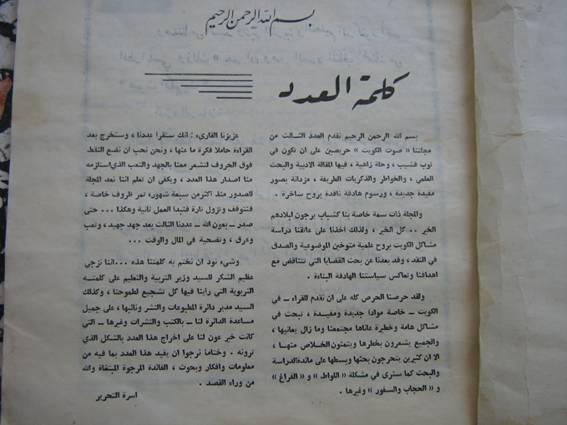 بسم الله الرحمن الرحيم
كلمة العدد
بسم الله الرحمن الرحيم نقدم العدد الثالث من
مجلتنا « صوت الكويت » حريصين على ان تكون في
ثوب قشيب ، وحلة زاهية ، فيها المقالة الادبية والبحث
العلمي ، والخواطر والذكريات الطريفة ، مزدانة بصور
مفيدة جديدة ، ورسوم هادفة ناقدة بروح ساخرة .
والمجلة ذات سمة خاصة بنا كشباب يرجون لبلادهم
الخير .. كل الخير ، ولذلك اخذنا على عاتقنا دراسة
مشاكل الكويت بروح علمية متوخين الموضوعية والصدق
في النقد ، وقد بعدنا عن بحث القضايا التي تتناقض مع
اهدافنا وتعاكس سياستنا الهادفة البناءة .
ولقد حرصنا الحرص كله على ان نقدم للقراء – في
الكويت – خاصة موادا جديدة ومفيدة ، تبحث في
مشاكل هامة وخطرة عاناها مجتمعنا وما زال يعانيها ،
والجميع يشعرون بخطرها ويتمنون الخلاص منها ،
الا ان كثيرين يتحرجون بحثها وبسطها على مائدة الدراسة
والبحث كما سترى في مشكلة « اللواط » و « الفراغ »
و « الحجاب والسفور » وغيرها .
عزيزنا القارىء : انك ستقرأ عددنا ، وستخرج بعد
القراءة حاملا فكرة ما عنها ، ونحن نحب ان نضع النقط
فوق الحروف لتشعر معنا بالجهد والتعب الذي استلزمه
منا اصدار هذا العدد ، ويكفي ان تعلم اننا نعد المجلة
للصدور منذ اكثر من سبعة شهور ، تمر ظروف خاصة ،
فتتوقف وتزول تارة فنبدأ العمل ثانية وهكذا ... حتى
صدر – بعون الله – عددنا الثالث بعد جهد جهيد ، وتعب
وعرق ، وتضحية في المال والوقت ...
وشيء نود ان نختم به كلمتنا هذه ... اننا نزجي
عظيم الشكر للسيد وزير التربية والتعليم على كلمته
التربوية التي رأينا فيها كل تشجيع لطموحنا ، وكذلك
السيد مدير دائرة المطبوعات والنشر ونائبها ، على جميل
مساعدة الدائرة لنا – بالكتب والنشرات وغيرها – التي
كانت خير عون لنا على اخراج هذا العدد بالشكل الذي
ترونه . وختاما نرجوا ان يفيد هذا العدد بما فيه من
معلومات وافكار وبحوث ، الفائدة المرجوة المبتغاة والله
من وراء القصد .
اسرة التحرير